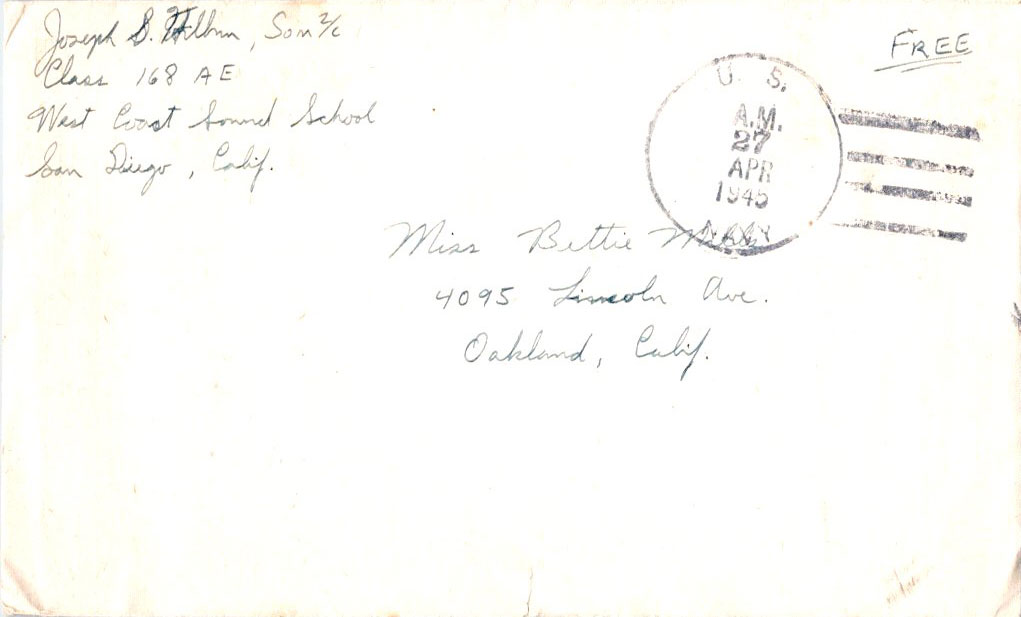 Joseph S. Hilbun, Som 2/c
Class 168 AE
West Coast Sound School
San Diego, Calif.
FREE
U. S.
A.M.
27
APR
1945
NAVY
Miss Bettie
4095 Lincoln Ave.
Oakland, Calif.